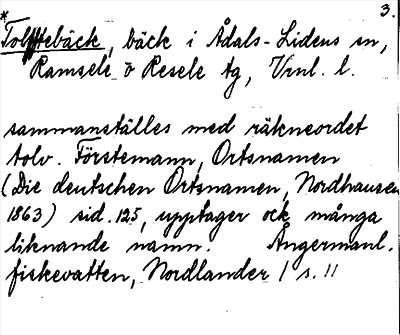 3.
*Tolfttebäck, bäck i Ådals-Lidens sn,
Ramsele o Resele tg, Vrnl. l.
sammanställes med räkneordet
tolv. Förstemann, Ortsnamen
(Die deutschen Ortsnamen, Nordhausen
1863) sid. 125, upptager ock många
liknande namn. Ångermanl.
fiskevatten, Nordlander / s. 11